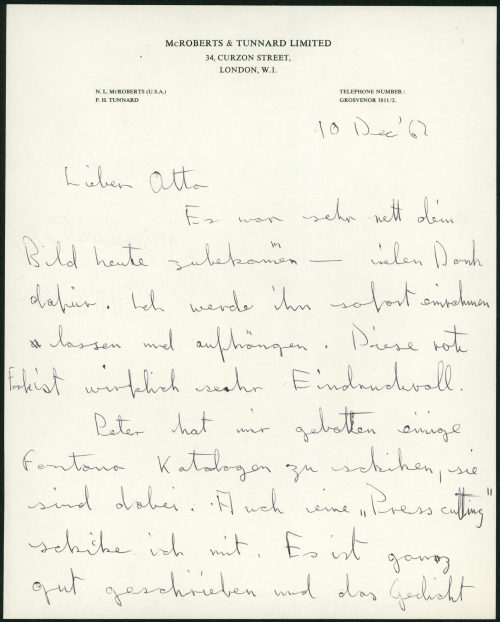 McROBERTS & TUNNARD LIMITED
34, CURZON STREET,
LONDON, W.1.
N. L. McROBERTS (U.S.A.)
P. H. TUNNARD
TELEPHONE NUMBER:
GROSVENOR 3811/2.
10 Dec' 62
Lieben Otto
Es war sehr nett dein
Bild heute zubekomen — vielen Dank
dafür. Ich werde ihn sofort einrahmen
lassen und aufhängen. Diese rote
Farbe ist wirklich sehr Eindruckvoll.
Peter hat mir gebotten einige
Fontana Katalogen zu schiken, sie
sind dabei. Auch eine „Press cutting"
schike ich mit. Es ist ganz
gut geschrieben und das Gedicht